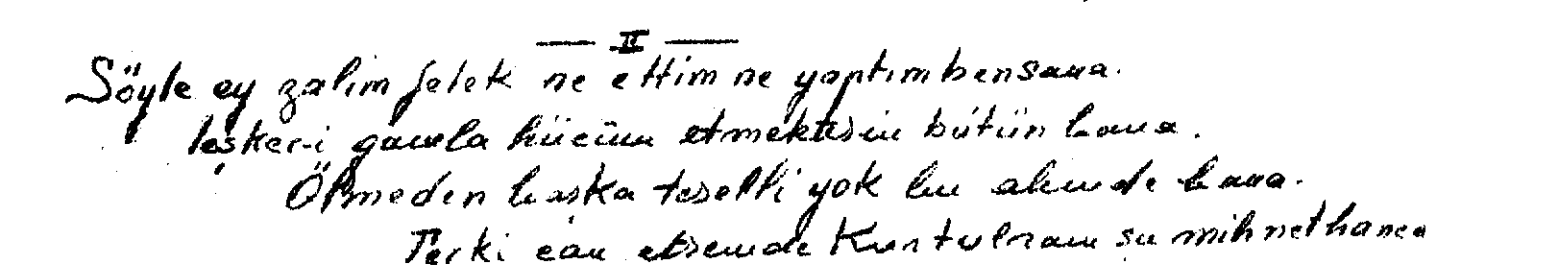 — II —
Söyle ey zalim felek ne ettim ne yaptım ben sana.
leşker-i gamla hücüm etmektesin bütün bana.
Ölmeden başka teselli yok bu alemde bana.
Terki can etsemde Kurtulsam şu mihnethaneden